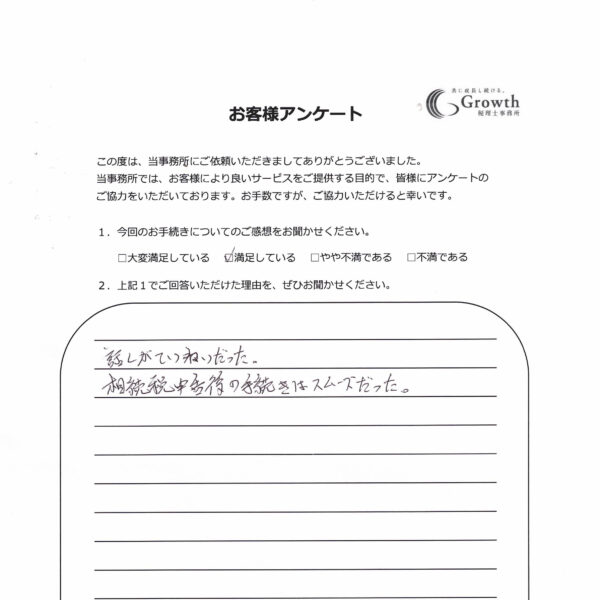 共に成長し続ける。
Growth
税理士事務所
お客様アンケート
この度は、当事務所にご依頼いただきましてありがとうございました。
当事務所では、お客様により良いサービスをご提供する目的で、皆様にアンケートの
ご協力をいただいております。お手数ですが、ご協力いただけると幸いです。
1．今回のお手続きについてのご感想をお聞かせください。
□大変満足している ☑満足している □やや不満である □不満である
2．上記1でご回答いただけた理由を、ぜひお聞かせください。
話しがていねいだった。
相続税申告後の手続きはスムーズだった。